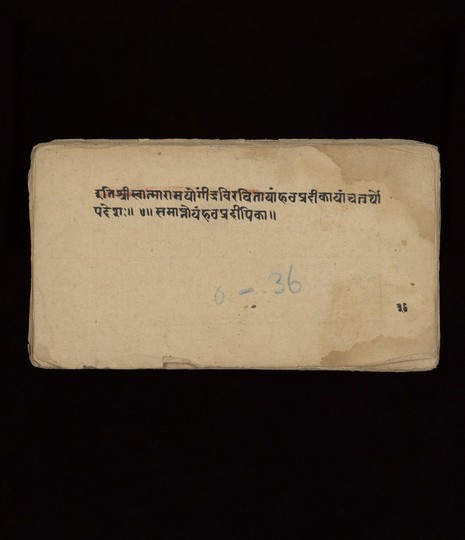 इति श्रीस्वात्मारामयोगींद्रविरचितायां हठप्रदीकायां चतुर्थो
पदेशः॥ ४॥ समाप्तोयं हठप्रदीपिका॥
0 - 36
३६